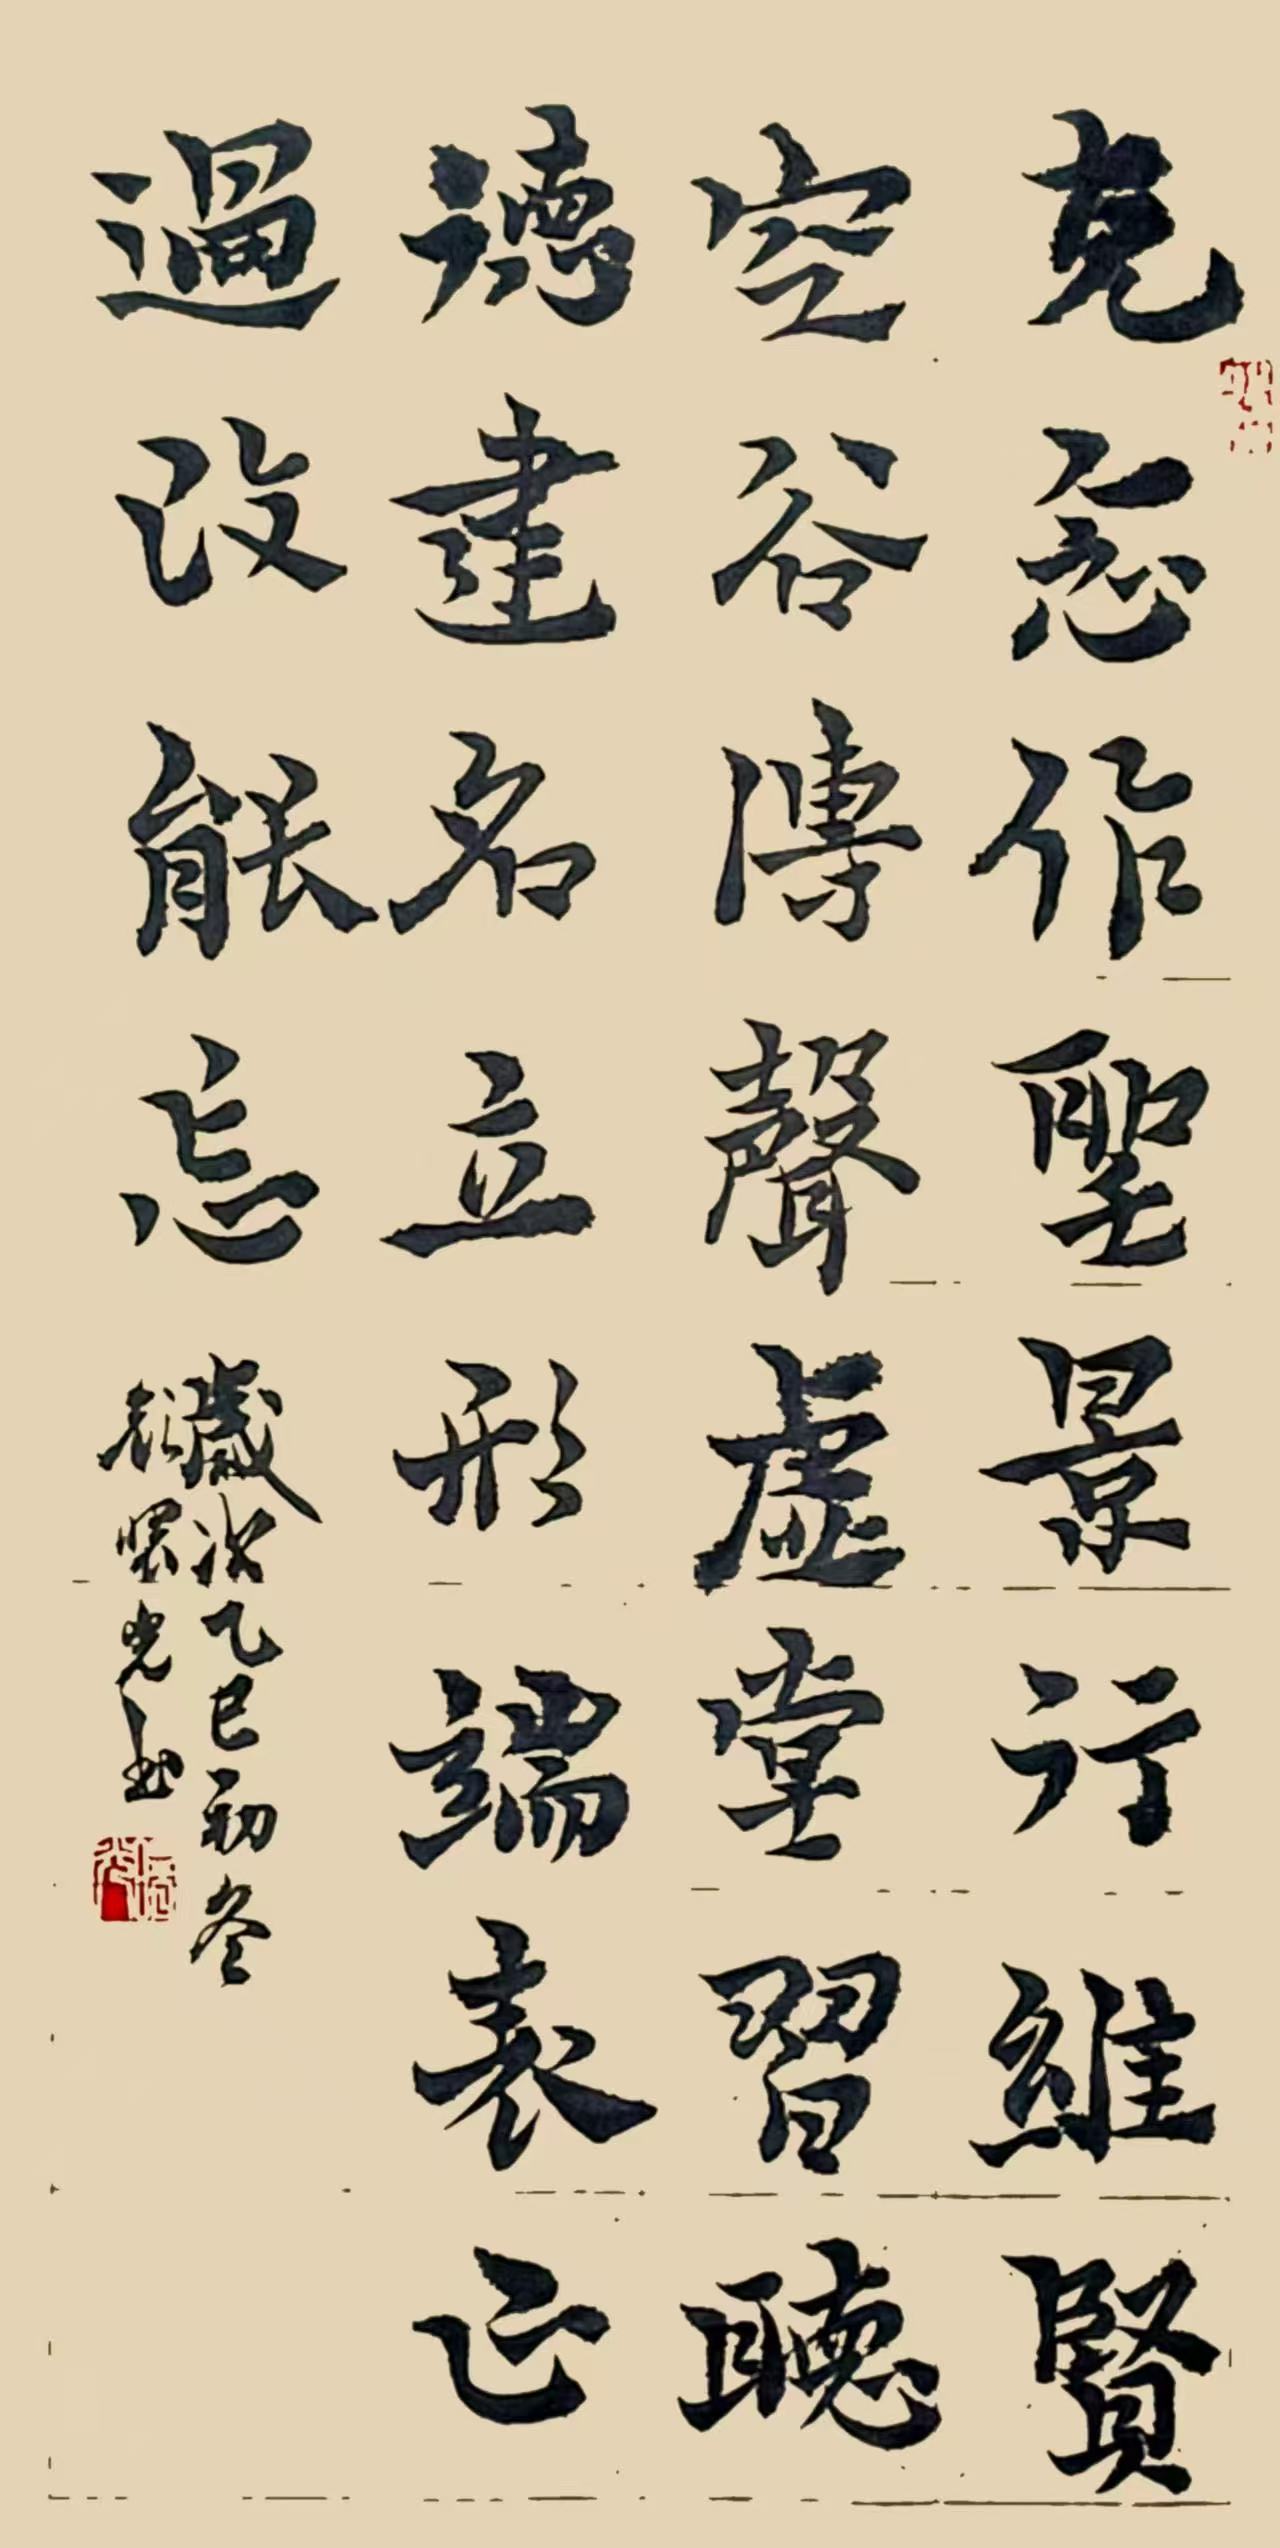 克念作聖景行維賢
空谷傳聲虛堂習聽
德建名立形端表正
過改能忘
歲次乙巳初冬
光书